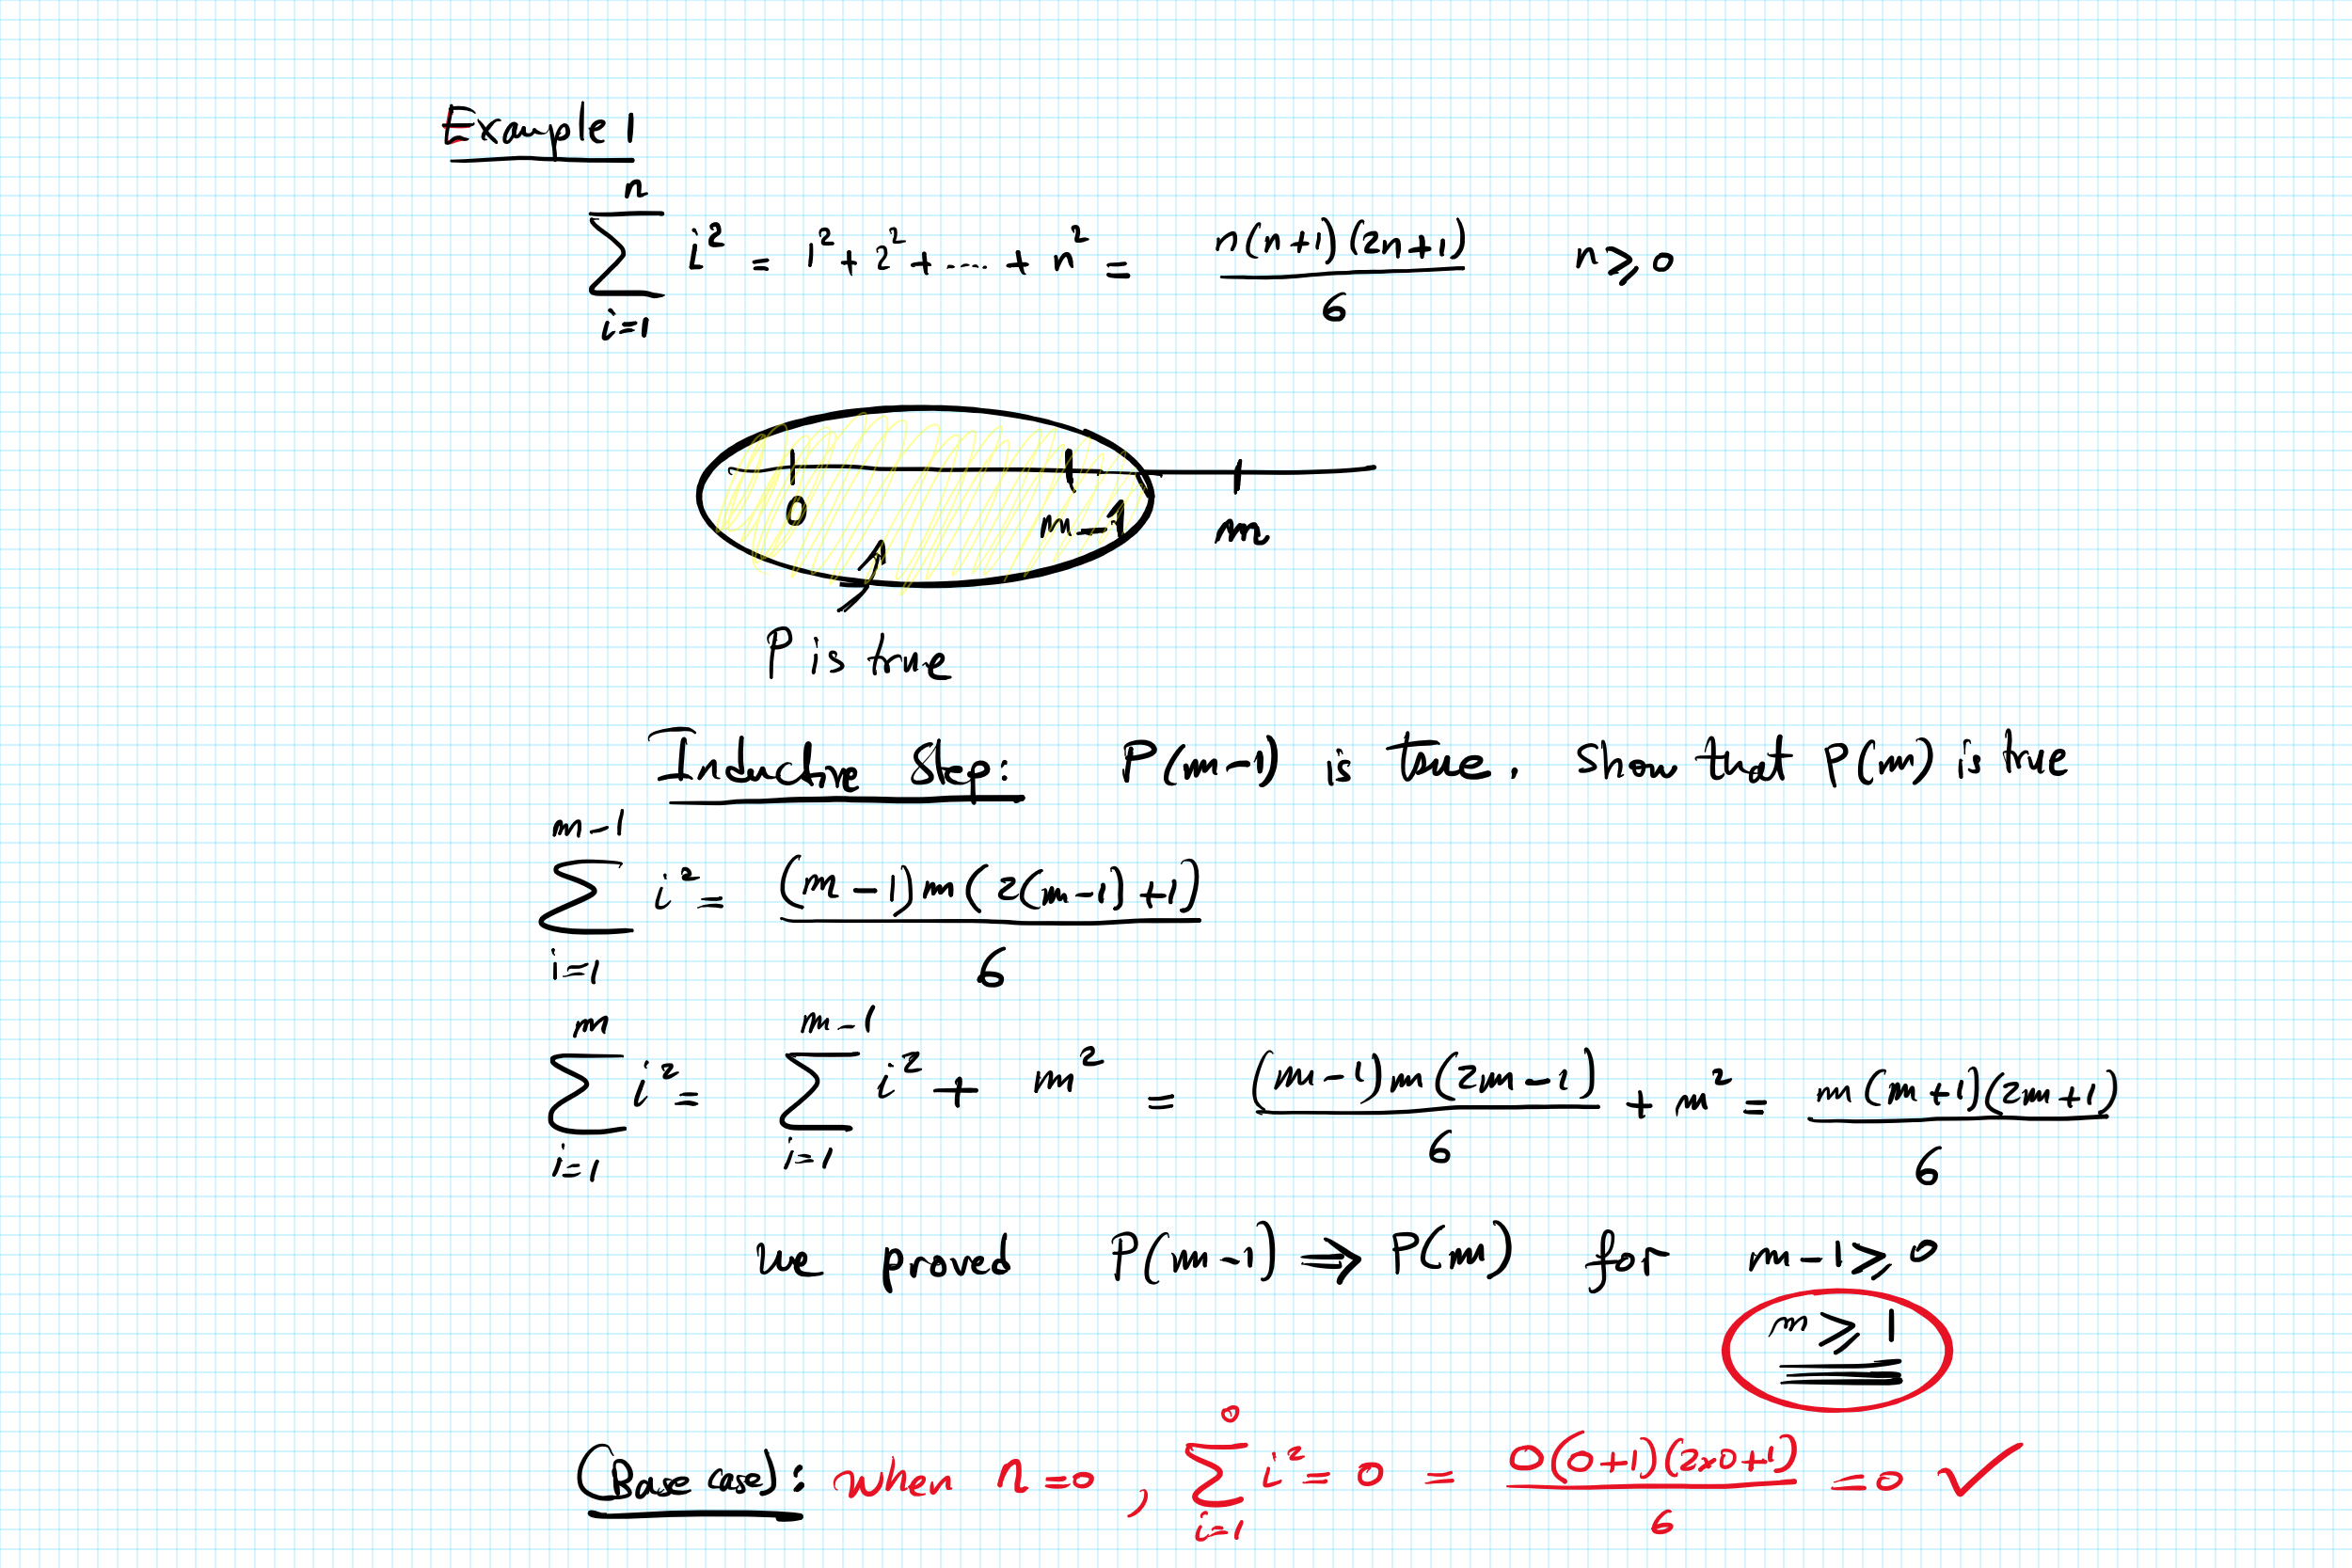 Example 1
∑_{i=1}^{n} i² = 1² + 2² + ---- + n² = n(n+1)(2n+1) / 6    n ⩾ 0
0    m-1    m
P is true
Inductive Step: P(m-1) is true. Show that P(m) is true
∑_{i=1}^{m-1} i² = (m-1)m(2(m-1)+1) / 6
∑_{i=1}^{m} i² = ∑_{i=1}^{m-1} i² + m² = (m-1)m(2m-1) / 6 + m² = m(m+1)(2m+1) / 6
we proved P(m-1) ⇒ P(m) for m-1 ⩾ 0
m ⩾ 1
(Base case): when n=0, ∑_{i=1}^{0} i² = 0 = 0(0+1)(2×0+1) / 6 = 0 ✓